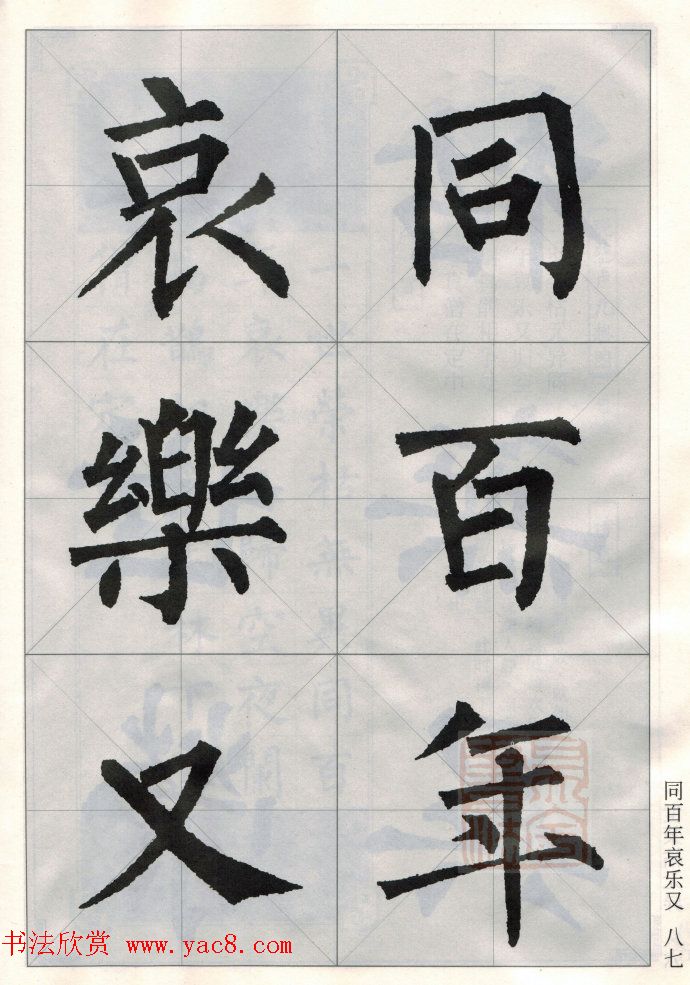 同百年
哀樂又
同百年哀乐又 八七
书法欣赏 www.yac8.com